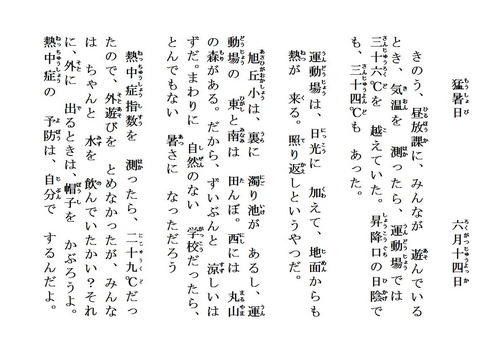 猛暑日 六月十四日
きのう、昼放課に、みんなが 遊んでいる
とき、気温を 測ったら、運動場では
三十六℃を 越えていた。昇降口の日陰で
も、三十四℃も あった。
運動場は、日光に 加えて、地面からも
熱が 来る。照り返しというやつだ。
旭丘小は、裏に 濁り池が あるし、運
動場の 東と南は 田んぼ。西には 丸山
の森がある。だから、ずいぶんと 涼しいは
ずだ。まわりに 自然のない 学校だったら、
とんでもない 暑さに なっただろう
熱中症指数を 測ったら、二十九℃だっ
たので、外遊びを とめなかったが、みんな
は ちゃんと 水を 飲んでいたかい？それ
に、外に 出るときは、帽子を かぶろうよ。
熱中症の 予防は、自分で するんだよ。